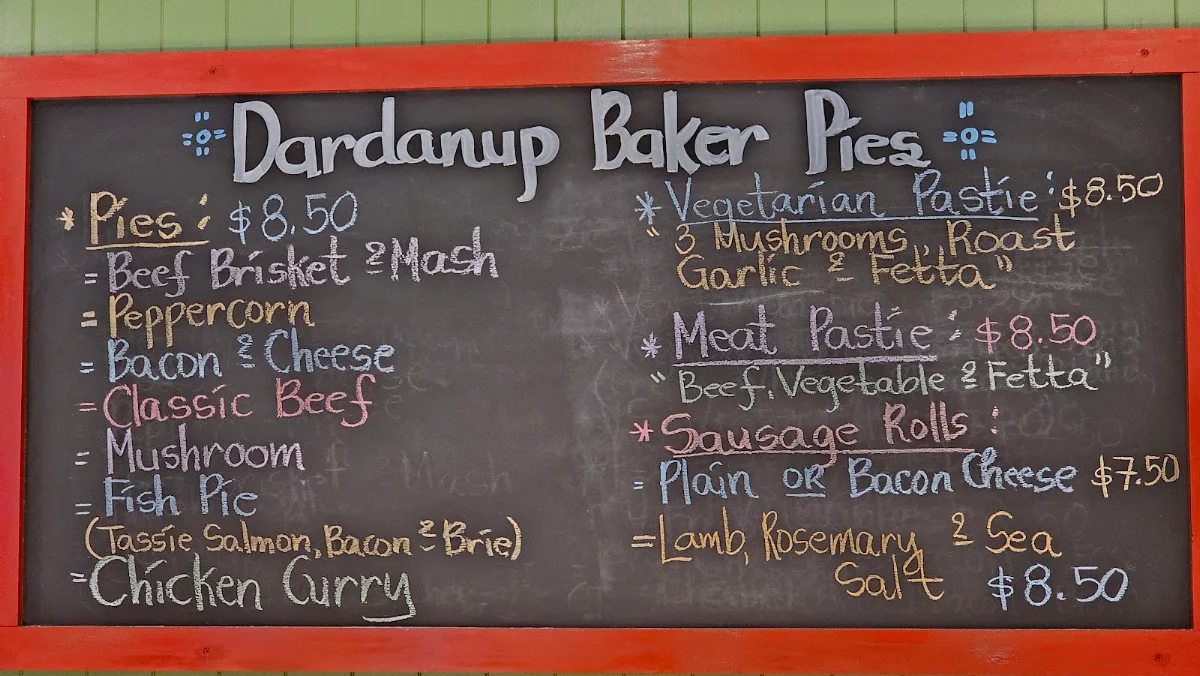 Dardanup Baker Pies
* Pies: $8.50
= Beef Brisket & Mash
= Peppercorn
= Bacon & Cheese
= Classic Beef
= Mushroom
= Fish Pie
(Tassie Salmon, Bacon & Brie)
= Chicken Curry
* Vegetarian Pastie: $8.50
"3 Mushrooms, Roast
Garlic & Fetta"
* Meat Pastie: $8.50
"Beef, Vegetable & Fetta"
* Sausage Rolls:
= Plain OR Bacon Cheese $7.50
= Lamb, Rosemary & Sea
Salt $8.50